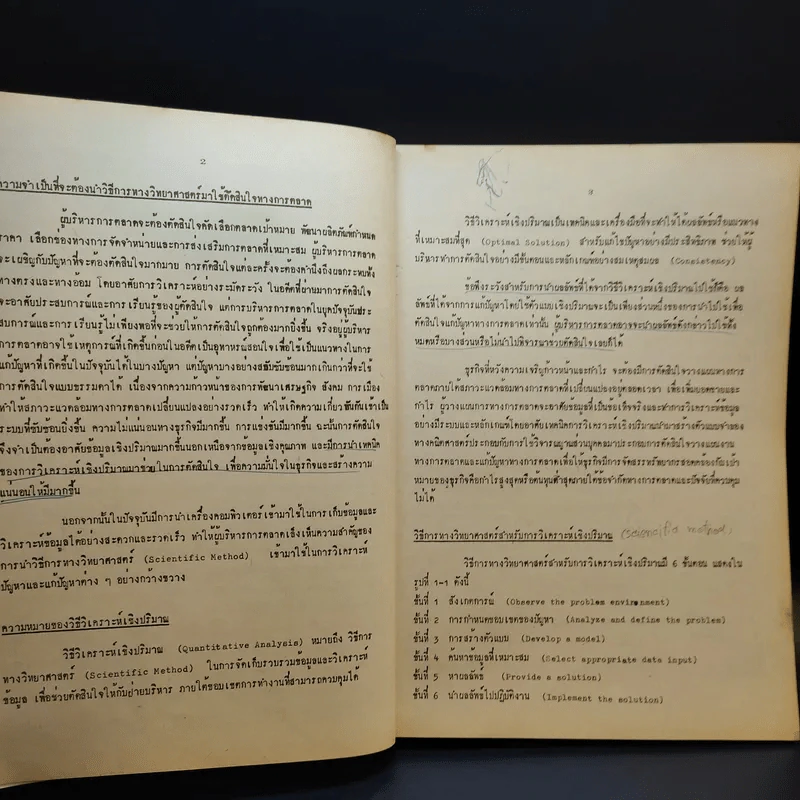 2
ความจำเป็นที่จะต้องนำวิธีการทางวิทยาศาสตร์มาใช้ตัดสินใจทางการตลาด
ผู้บริหารการตลาดจะต้องตัดสินใจคัดเลือกตลาดเป้าหมาย พัฒนาผลิตภัณฑ์กำหนด
ราคา เลือกช่องทางการจัดจำหน่ายและการส่งเสริมการตลาดที่เหมาะสม ผู้บริหารการตลาด
จะเผชิญกับปัญหาที่จะต้องตัดสินใจมากมาย การตัดสินใจแต่ละครั้งจะต้องคำนึงถึงผลกระทบทั้ง
ทางตรงและทางอ้อม โดยอาศัยการวิเคราะห์อย่างระมัดระวัง ในอดีตที่ผ่านมาการตัดสินใจ
จะอาศัยประสบการณ์และการเรียนรู้ของผู้ตัดสินใจ แต่การบริหารการตลาดในยุคปัจจุบันประ
สบการณ์และการเรียนรู้ไม่เพียงพอที่จะช่วยให้การตัดสินใจถูกต้องมากยิ่งขึ้น จริงอยู่ผู้บริหาร
การตลาดอาจใช้เหตุการณ์ที่เกิดขึ้นก่อนในอดีตเป็นอุทาหรณ์สอนใจเพื่อใช้เป็นแนวทางในการ
แก้ปัญหาที่เกิดขึ้นในปัจจุบันได้ในบางปัญหา แต่ปัญหาบางอย่างสลับซับซ้อนมากเกินกว่าที่จะใช้
การตัดสินใจแบบธรรมดาได้ เนื่องจากความก้าวหน้าของการพัฒนาเศรษฐกิจ สังคม การเมือง
ทำให้สภาวะแวดล้อมทางการตลาดเปลี่ยนแปลงอย่างรวดเร็ว ทำให้เกิดความเกี่ยวพันกันเข้าเป็น
ระบบที่ซับซ้อนยิ่งขึ้น ความไม่แน่นอนทางธุรกิจมีมากขึ้น การแข่งขันมีมากขึ้น ฉะนั้นการตัดสินใจ
จึงจำเป็นต้องอาศัยข้อมูลเชิงปริมาณมากขึ้นนอกเหนือจากข้อมูลเชิงคุณภาพ และมีการนำเทคนิค
ของการวิเคราะห์เชิงปริมาณมาช่วยในการตัดสินใจ เพื่อความมั่นใจในธุรกิจและสร้างความ
แน่นอนให้มีมากขึ้น
นอกจากนั้นในปัจจุบันมีการนำเครื่องคอมพิวเตอร์เข้ามาใช้ในการเก็บข้อมูลและ
วิเคราะห์ข้อมูลได้อย่างสะดวกและรวดเร็ว ทำให้ผู้บริหารการตลาดเล็งเห็นความสำคัญของ
การนำวิธีการทางวิทยาศาสตร์ (Scientific Method) เข้ามาใช้ในการวิเคราะห์
ปัญหาและแก้ปัญหาต่าง ๆ อย่างกว้างขวาง
ความหมายของวิธีวิเคราะห์เชิงปริมาณ
วิธีวิเคราะห์เชิงปริมาณ (Quantitative Analysis) หมายถึง วิธีการ
ทางวิทยาศาสตร์ (Scientific Method) ในการจัดเก็บรวบรวมข้อมูลและวิเคราะห์
ข้อมูล เพื่อช่วยตัดสินใจให้กับฝ่ายบริหาร ภายใต้ขอบเขตการทำงานที่สามารถควบคุมได้
วิธีวิเคราะห์เชิงปริมาณเป็นเทคนิคและเครื่องมือที่จะทำให้ได้ผลลัพธ์หรือแนวทาง
ที่เหมาะสมที่สุด (Optimal Solution) สำหรับแก้ไขปัญหาอย่างมีประสิทธิภาพ ช่วยให้ผู้
บริหารทำการตัดสินใจอย่างมีขั้นตอนและหลักเกณฑ์อย่างสมเหตุสมผล (Consistency)
ข้อพึงระวังสำหรับการนำผลลัพธ์ที่ได้จากวิธีวิเคราะห์เชิงปริมาณไปใช้ก็คือ ผล
ลัพธ์ที่ได้จากการแก้ปัญหาโดยใช้ตัวแบบเชิงปริมาณจะเป็นเพียงส่วนหนึ่งของการนำไปใช้เพื่อ
ตัดสินใจแก้ปัญหาทางการตลาดเท่านั้น ผู้บริหารการตลาดอาจจะนำผลลัพธ์ดังกล่าวไปใช้ทั้ง
หมดหรือบางส่วนหรือไม่นำไปพิจารณาช่วยตัดสินใจเลยก็ได้
ธุรกิจที่หวังความเจริญก้าวหน้าและกำไร จะต้องมีการตัดสินใจวางแผนทางการ
ตลาดภายใต้สภาวะแวดล้อมทางการตลาดที่เปลี่ยนแปลงอยู่ตลอดเวลา เพื่อเพิ่มยอดขายและ
กำไร ผู้วางแผนทางการตลาดจะอาศัยข้อมูลที่เป็นข้อเท็จจริงและทำการวิเคราะห์ข้อมูล
อย่างมีระบบและหลักเกณฑ์โดยอาศัยเทคนิคการวิเคราะห์เชิงปริมาณนำมาสร้างตัวแบบจำลอง
ทางคณิตศาสตร์ประกอบกับการใช้วิจารณญานส่วนบุคคลมาประกอบการตัดสินใจวางแผนงาน
ทางการตลาดและแก้ปัญหาทางการตลาดเพื่อให้ธุรกิจมีการจัดสรรทรัพยากรสอดคล้องกับเป้า
หมายของธุรกิจคือกำไรสูงสุดหรือต้นทุนต่ำสุดภายใต้ข้อจำกัดทางการตลาดและปัจจัยที่ควบคุม
ไม่ได้
วิธีการทางวิทยาศาสตร์สำหรับการวิเคราะห์เชิงปริมาณ (scientific method)
วิธีการทางวิทยาศาสตร์สำหรับการวิเคราะห์เชิงปริมาณมี 6 ขั้นตอน แสดงใน
รูปที่ 1-1 ดังนี้
ขั้นที่ 1 สังเกตการณ์ (Observe the problem environment)
ขั้นที่ 2 การกำหนดขอบเขตของปัญหา (Analyze and define the problem)
ขั้นที่ 3 การสร้างตัวแบบ (Develop a model)
ขั้นที่ 4 ค้นหาข้อมูลที่เหมาะสม (Select appropriate data input)
ขั้นที่ 5 หาผลลัพธ์ (Provide a solution)
ขั้นที่ 6 นำผลลัพธ์ไปปฏิบัติงาน (Implement the solution)